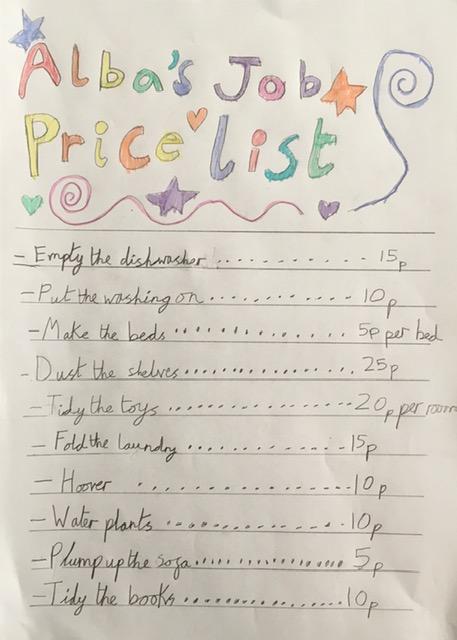 Alba's Job
Price list
- Empty the dishwasher ............ 15p
- Put the washing on ............ 10p
- Make the beds ............ 5p per bed
- Dust the shelves ............ 25p
- Tidy the toys ............ 20p per room
- Fold the laundry ............ 15p
- Hoover ............ 10p
- Water plants ............ 10p
- Plump up the sofa ............ 5p
- Tidy the books ............ 10p